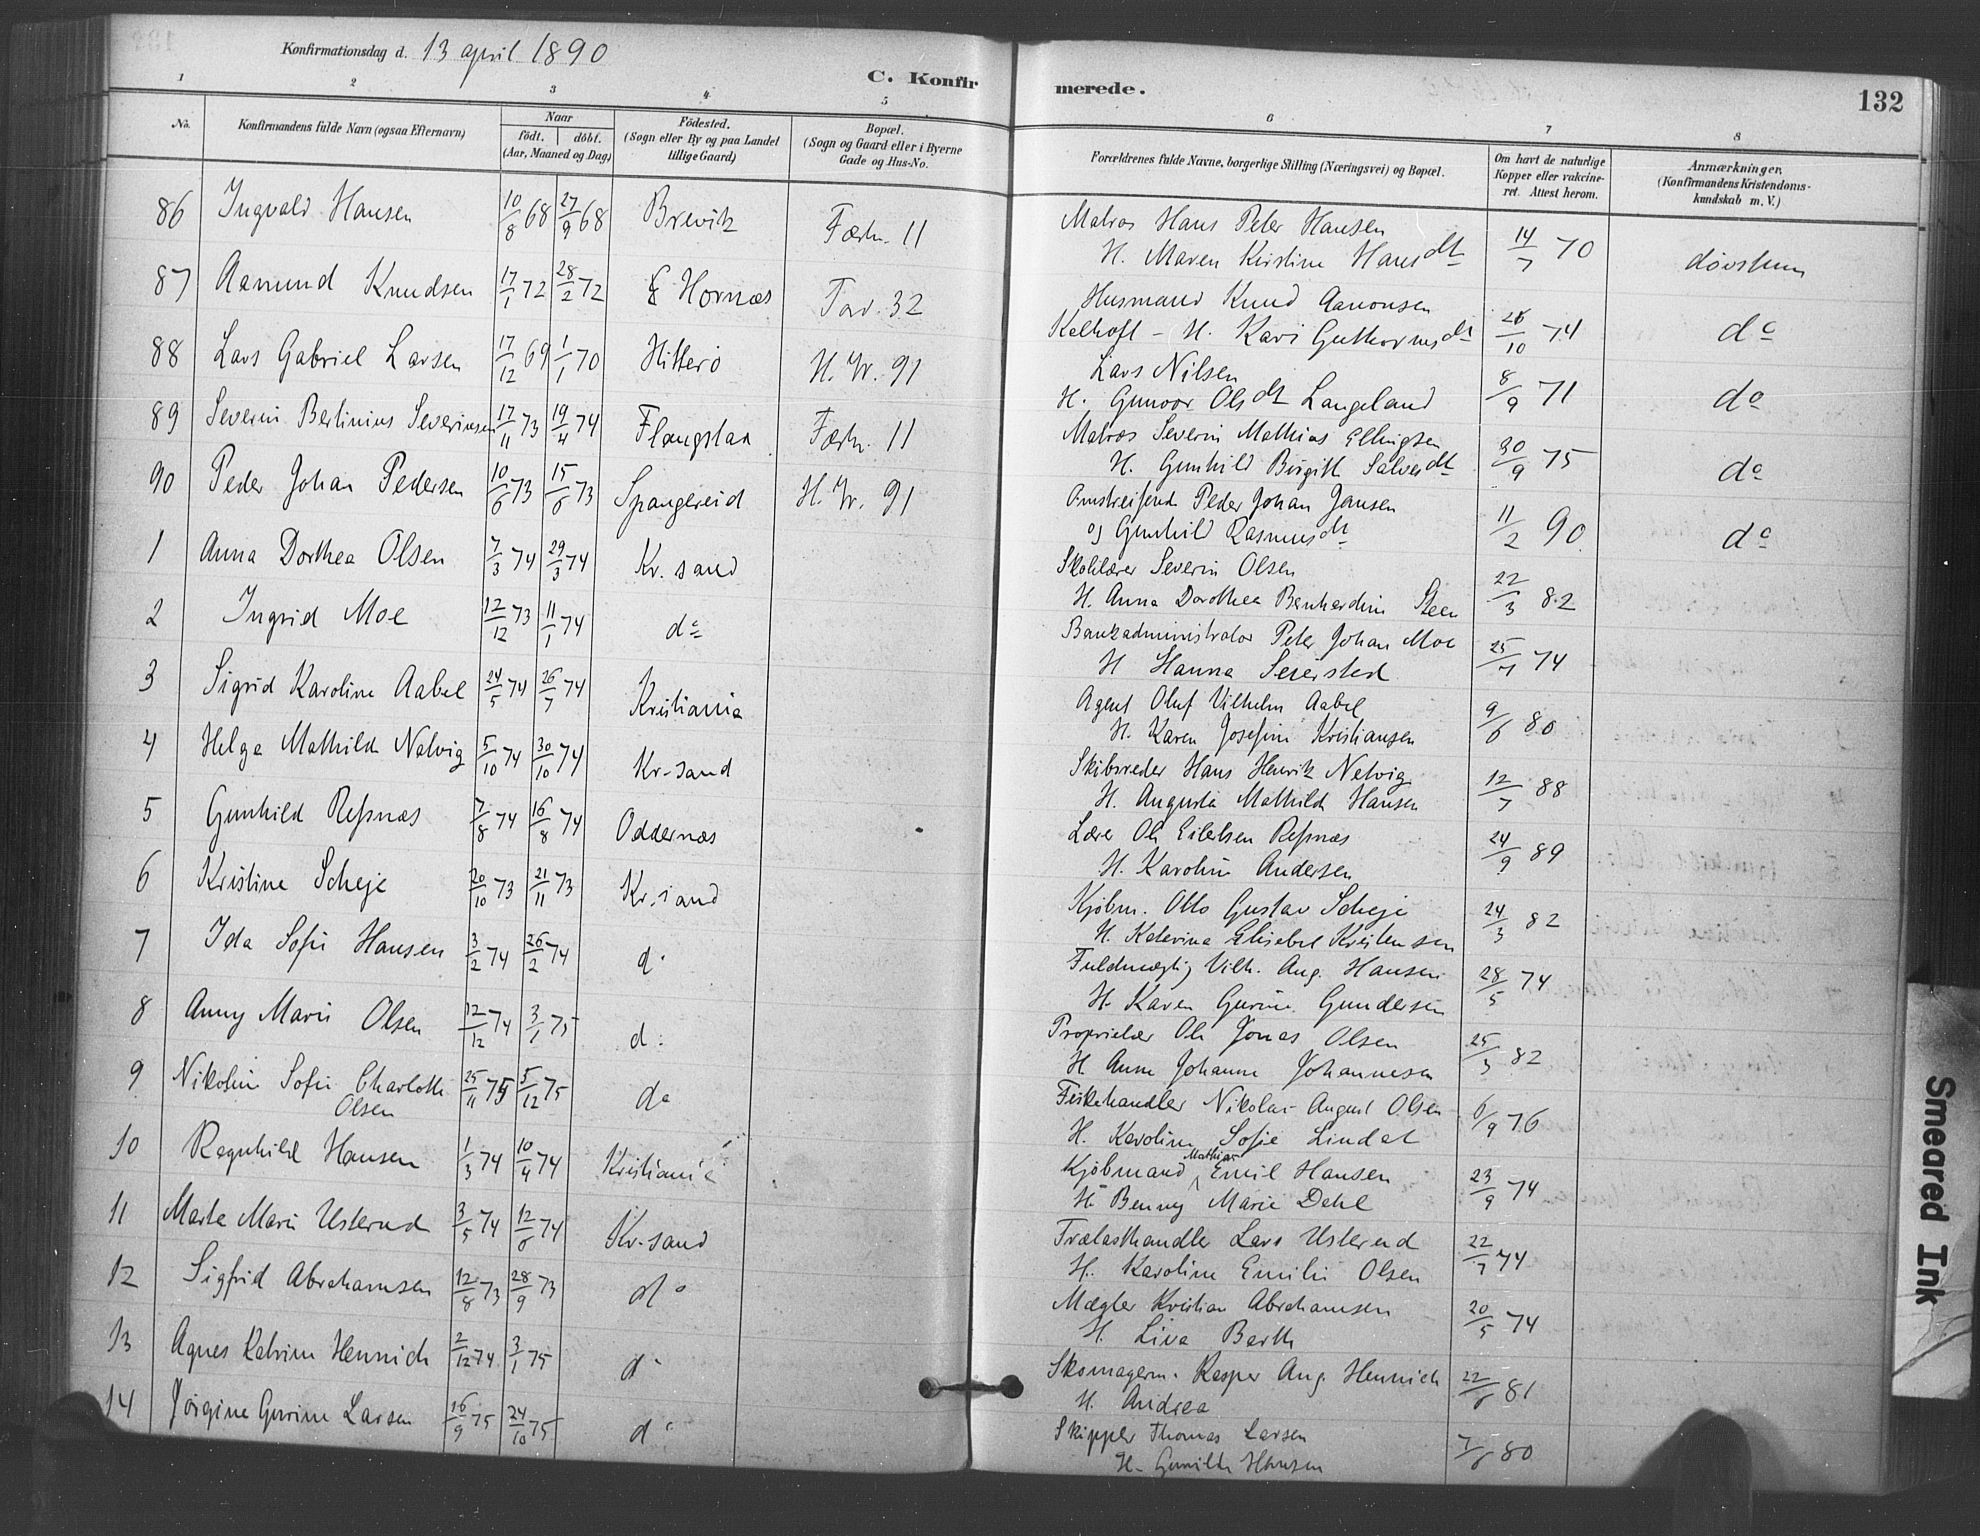 Konfirmationsdag d. 13 april 1890
C. Konfirmerede.
132
1 2 3 4 5 6 7 8
No.
Konfirmandens fulde Navn (ogsaa Efternavn)
Naar
født. døbt.
(Aar, Maaned og Dag)
Fødested.
(Sogn eller By og paa Landet
tillige Gaard)
Bopæl.
(Sogn og Gaard eller i Byerne
Gade og Hus-No.
Forældrenes fulde Navne, borgerlige Stilling (Næringsvei) og Bopæl.
Om havt de naturlige
Kopper eller vakcine-
ret. Attest herom.
Anmærkninger.
(Konfirmandens Kristendoms-
kundskab m. V.)
86 Ingvald Hansen 10/8 68 27/9 68 Brevik Færk. 11 Matros Hans Peter Hansen 14/7 70 døvstum
H. Maren Kirstine Hansdt
87 Aamund Knudsen 17/1 72 28/2 72 Hornæs Tav. 32 Husmand Knud Aanonsen 26/10 74 do
H. Kari Guthormsdt
88 Lars Gabriel Larsen 17/12 69 1/1 70 Hitterø H. W. 91 Lars Nilsen 8/9 71 do
H. Gunvor Olsdt Langeland
89 Severin Bertinius Severinsen 17/11 73 19/4 74 Flangstad Færk. 11 Matros Severin Mathias Ellingsen 30/9 75 do
H. Gunhild Birgitt Salvesdt
90 Peder Johan Pedersen 10/6 73 15/6 73 Spangereid H. W. 91 Omstreifend Peder Johan Jansen 11/2 90 do
og Gunhild Rasmusdt
1 Anna Dorthea Olsen 7/3 74 29/3 74 Kr. sand Skolelærer Severin Olsen 22/3 82
H. Anna Dorothea Bernhardin Steen
2 Ingrid Moe 12/12 73 11/1 74 do Bankadministrator Peter Johan Moe 25/7 74
H Hanna Seiersted
3 Sigrid Karoline Aabel 24/5 74 26/7 74 Kristiania Agent Oluf Vilhelm Aabel 9/6 80
H. Karen Josefine Kristiansen
4 Helga Mathild Nelvig 5/10 74 30/10 74 Kr-sand Skibsreder Hans Henrik Nelvig 12/7 88
H. Augusta Mathild Hansen
5 Gunhild Refsnæs 7/8 74 16/8 74 Oddernæs Lærer Ole Eilertsen Refsnæs 24/9 89
H. Karoline Andersen
6 Kristine Scheje 20/10 73 21/11 73 Kr.sand Kjøbm. Otto Gustav Scheje 24/3 82
H. Katerina Elisabet Kristensen
7 Ida Sofie Hansen 3/2 74 26/2 74 do Fuldmægtig Vilh. Aug. Hansen 28/5 74
H. Karen Gurine Gundersen
8 Anny Marie Olsen 12/12 74 3/1 75 do Proprietær Ole Jonas Olsen 25/3 82
H Anne Johanne Johannesen
9 Nikoline Sofie Charlotte 25/11 75 5/12 75 do Fiskehandler Nikolai August Olsen 6/9 76
Olsen H. Karoline Sofie Lindal
10 Ragnhild Hansen 1/3 74 10/4 74 Kristiania Kjøbmand Mathias Emil Hansen 23/9 74
H Benny Marie Dahl
11 Marta Marie Usterud 3/5 74 12/6 74 Kr-sand Trælasthandler Lars Usterud 22/7 74
H. Karoline Emilie Olsen
12 Sigfrid Abrahamsen 12/8 73 28/9 73 do Mægler Kristian Abrahamsen 20/5 74
H. Lina Barth
13 Agnes Katrine Hennich 2/12 74 3/1 75 do Skomagerm. Kasper Aug. Hennich 22/6 81
H. Andrea
14 Jørgine Gurine Larsen 16/9 75 24/10 75 do Skipper Thomas Larsen 7/6 80
H. Gunilde Hansen
Smeared Ink